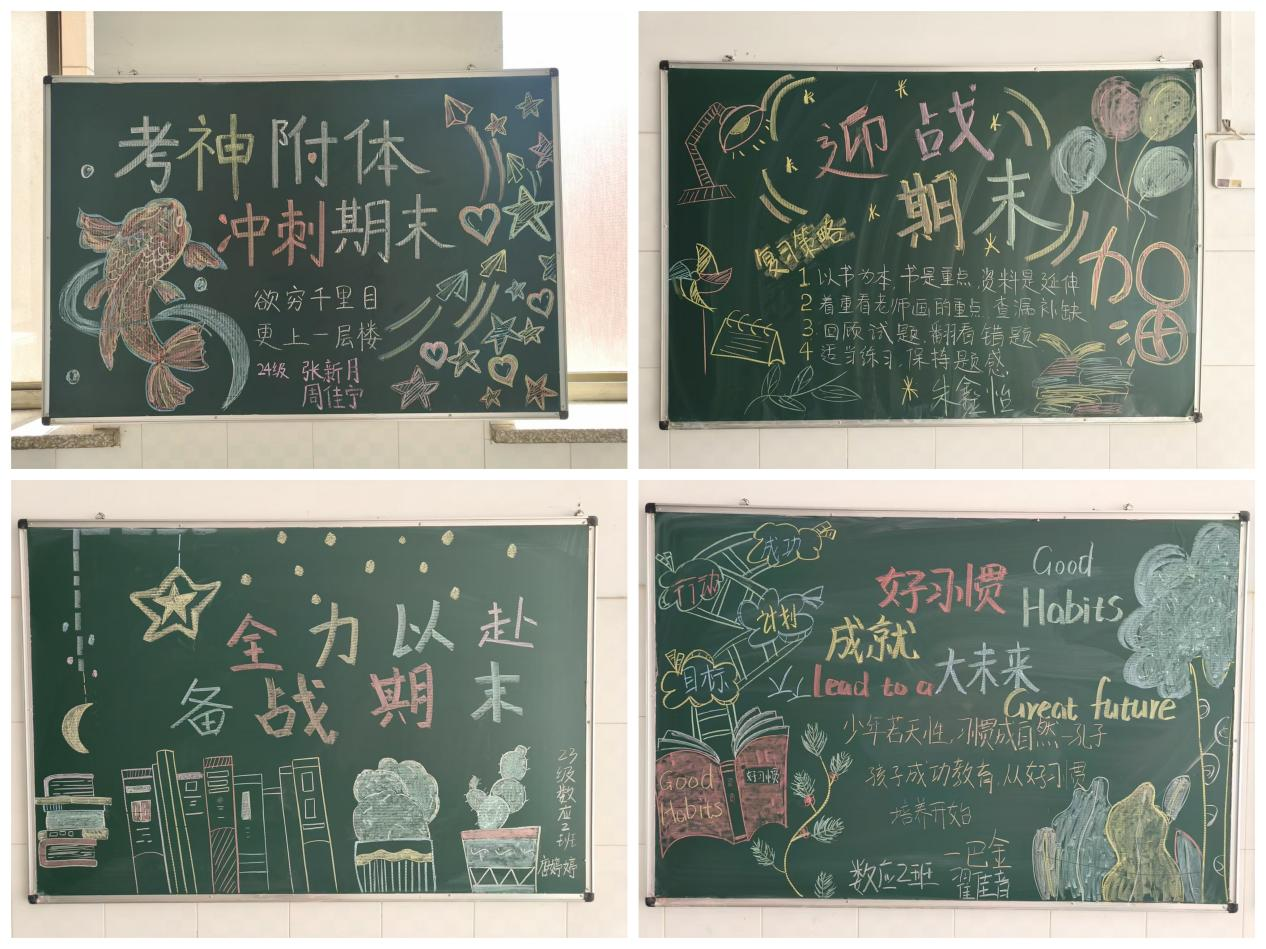 考神附体
冲刺期末
欲穷千里目
更上一层楼
24级 张新月
周佳宁
迎战
期末
加油
复习策略
1 以书为本,书是重点,资料是延伸
2 着重看老师画的重点,查漏补缺
3 回顾试题,翻看错题
4 适当练习,保持题感
朱鑫怡
全力以赴
备战期末
23级数应2班
唐婷婷
成功
行动
计划
目标
好习惯 Good Habits
成就 大未来
lead to a
Great future
少年若天性,习惯成自然—孔子
孩子成功教育,从好习惯
培养开始
—巴金
Good Habits
好习惯
数应2班 翟佳音